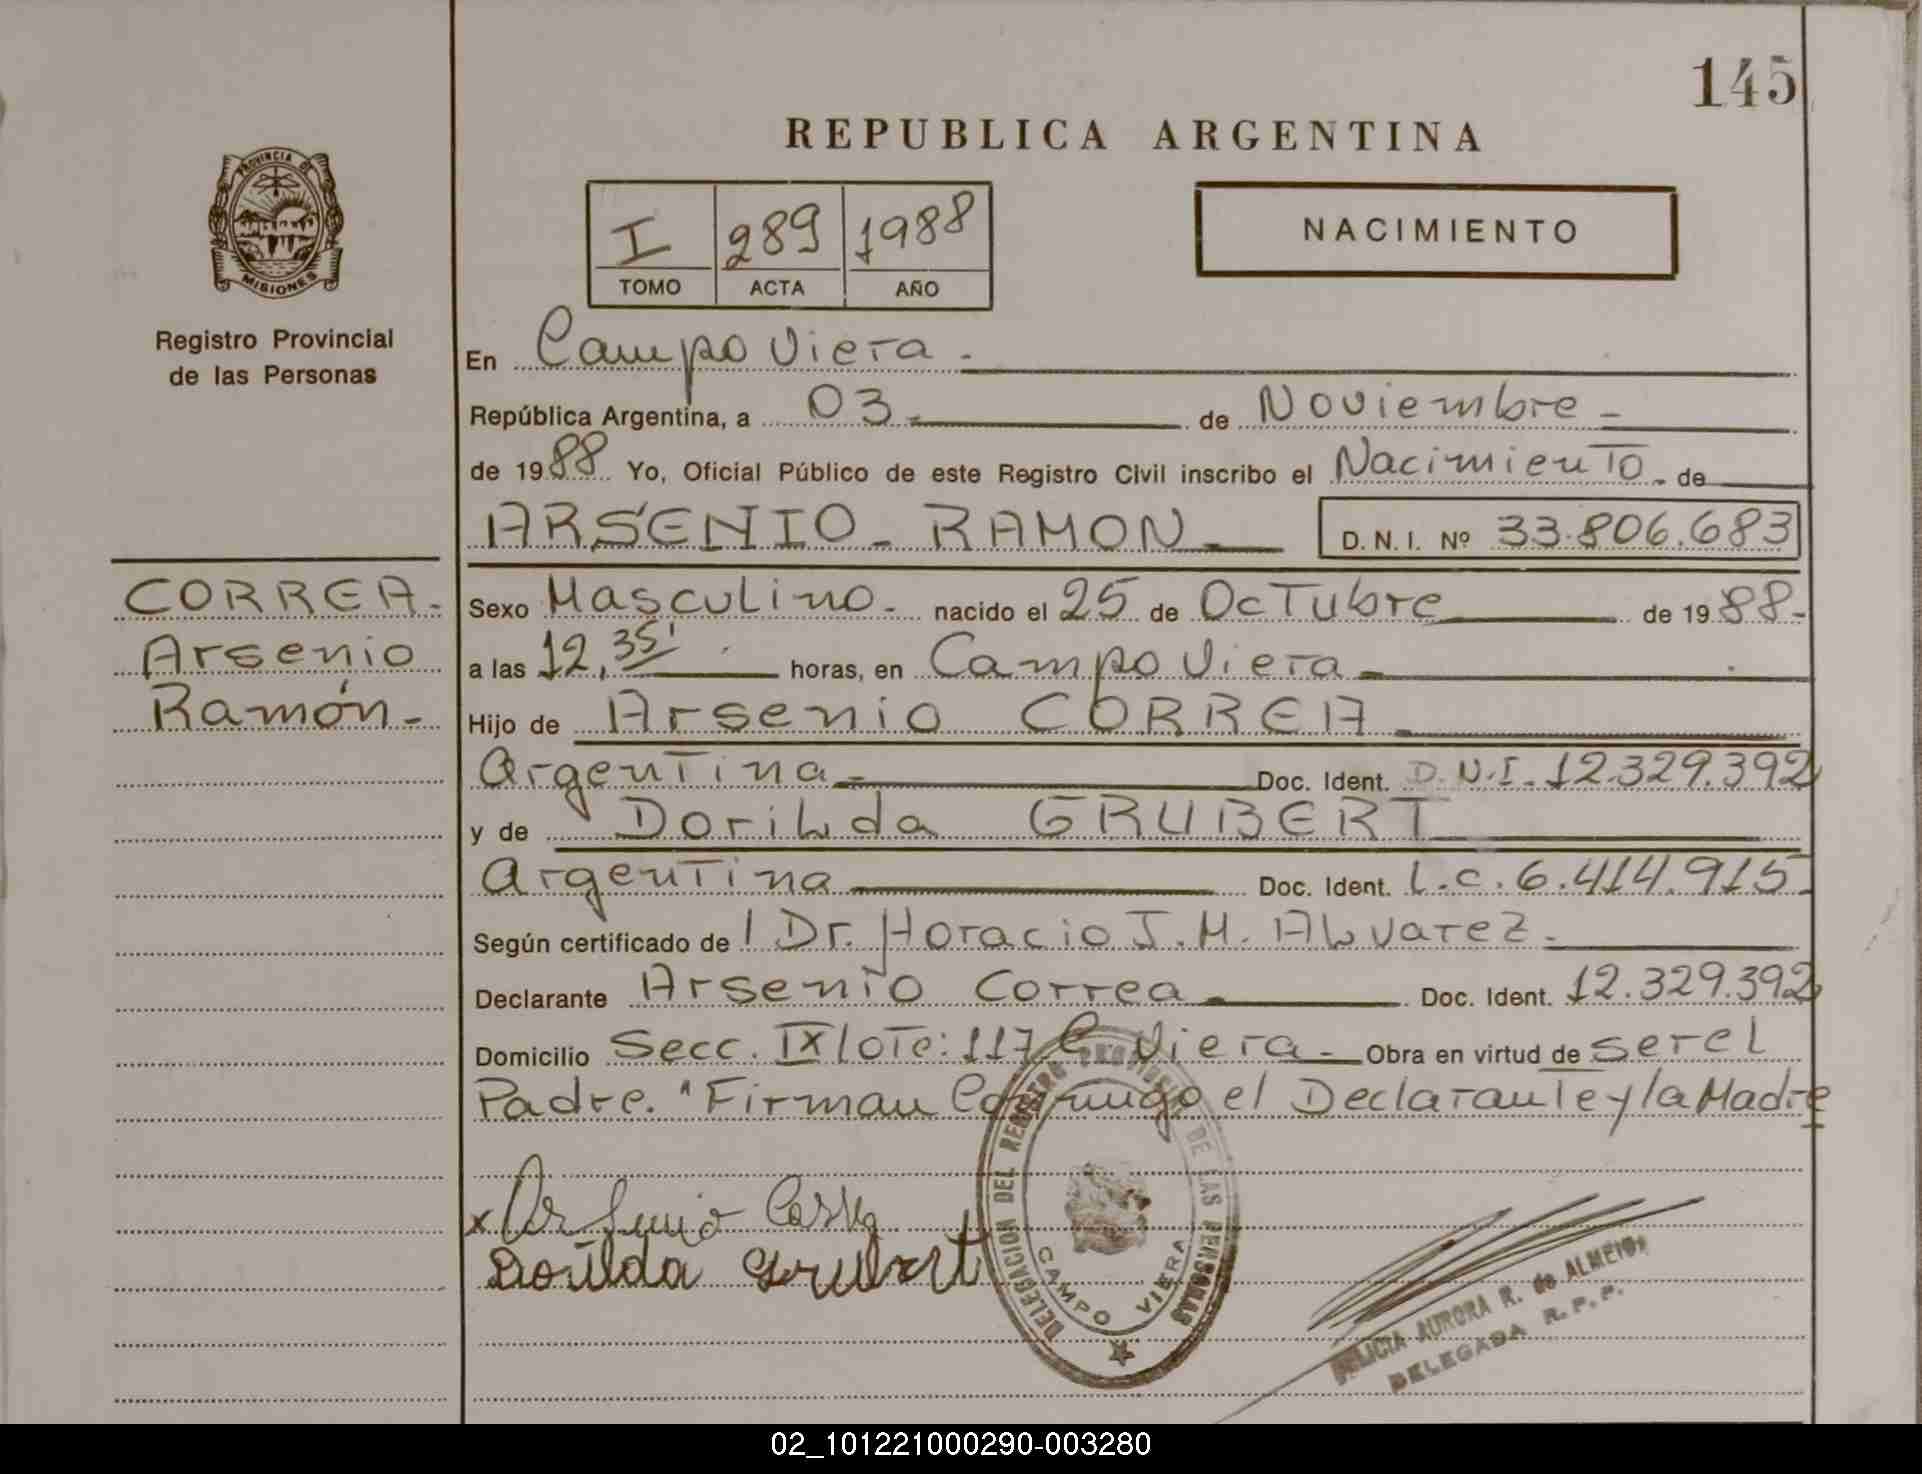 145
REPUBLICA ARGENTINA
PROVINCIA DE
MISIONES
Registro Provincial
de las Personas
I 289 1988
TOMO ACTA AÑO
NACIMIENTO
En Campo Viera.
República Argentina, a 03 de Noviembre
de 1988 Yo, Oficial Público de este Registro Civil inscribo el Nacimiento de
ARSENIO RAMON D.N.I. Nº 33.806.683
CORREA
Arsenio
Ramón
Sexo Masculino nacido el 25 de Octubre de 1988
a las 12,35' horas, en Campo Viera
Hijo de Arsenio CORREA
Argentina Doc. Ident. D.N.I. 12.329.392
y de Dorilda GRUBERT
Argentina Doc. Ident. L.C. 6.414.915
Según certificado de / Dr. Horacio J.M. Alvarez
Declarante Arsenio Correa Doc. Ident. 12.329.392
Domicilio Secc. IX lote: 117 C Viera Obra en virtud de ser el
Padre. "Firman Conmigo el Declarante y la Madre
x Arsenio
Dorilda Grubert
DELEGACION DEL REGISTRO PROVINCIAL DE LAS PERSONAS
CAMPO VIERA
AURORA R. de ALMEIDA
DELEGADA R.P.P.
02_101221000290-003280